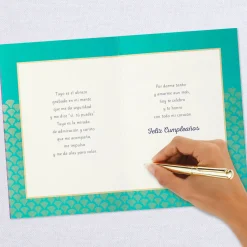 Tuyo es el abrazo
grabado en mi mente
que me da seguridad
y me dice "sí, tú puedes".
Tuya es la mirada
de admiración y cariño
que me acompaña
me impulsa
y me da alas para volar.
Por darme tanto
y amarme aún más,
hoy te celebro
y te honro
con todo mi corazón.
Feliz Cumpleaños